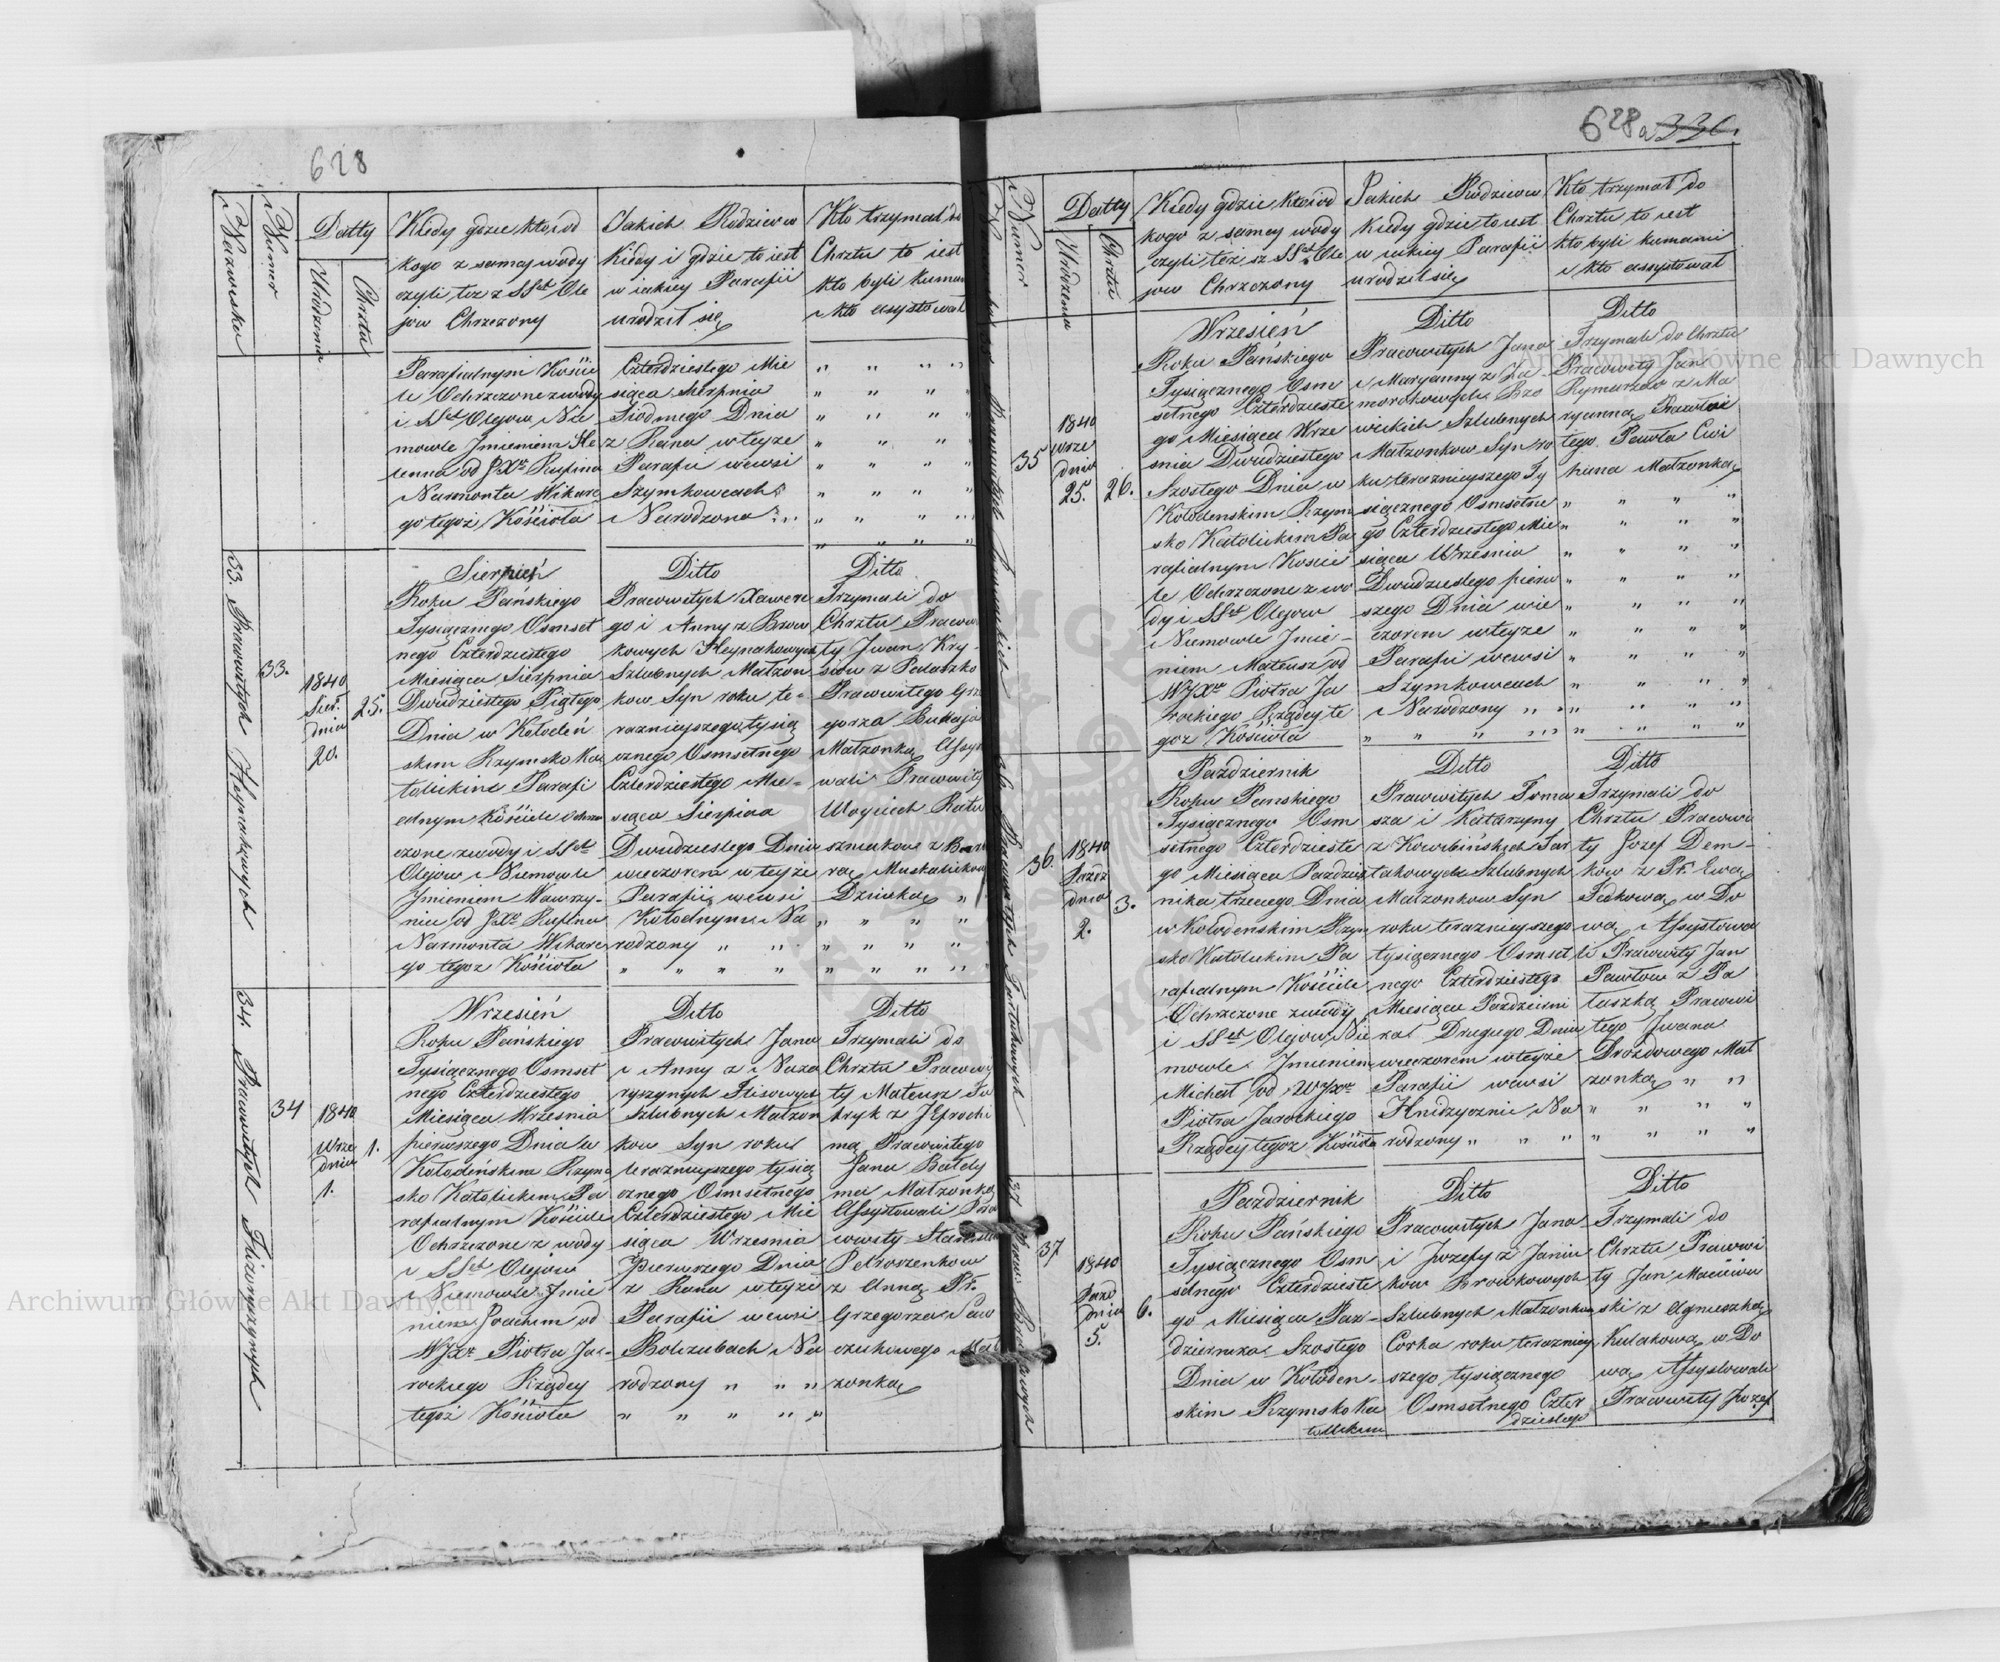 628
Nazwiska
Numer
Datty
Urodzenia
Chrztu
Kiedy gdzie kto i od
kogo z samej wody
czyli też z SSch Ole
jow Chrzczony
Jakich Rodziców
Kiedy i gdzie to iest
w iakiey Parafii
urodził się
Kto trzymał do
Chrztu to iest
kto byli kumami
i kto assystował
Parafialnym Koście
le Ochrzczone z wody
i SSch Olejow Nie
mowle Jmieniem He
lenna od JXa Rufina
Narmonta Wikare
go tegoż Kościoła
Czterdziestego Mie
siąca Sierpnia
Siodmego Dnia
z Rana w teyze
Parafii wewsi
Szymkowcach
Narodzona
33. Pracowitych Heynakowych
33.
1840
Sier.
dnia
20.
25.
Sierpień
Roku Pańskiego
Tysiącznego Osmset
nego Czterdziestego
Miesiąca Sierpnia
Dwudziestego Piątego
Dnia w Kołodeń
skim Rzymsko Ka
tolickim Parafi
alnym Kościele Ochrz
czone z wody i SSch
Olejow Niemowle
Jmieniem Wawrzy-
niec od JXa Rufina
Narmonta Wikare
go tegoz Kościoła
Ditto
Pracowitych Xawere
go i Anny z Brow
kowych Heynakowych
Szlubnych Małzon
kow Syn roku te-
raznieyszego tysią
cznego Osmsetnego
Czterdziestego Mie-
siąca Sierpnia
Dwudziestego Dnia
wieczorem w teyże
Parafii wewsi
Kołodnym Na
rodzony
Ditto
Trzymali do
Chrztu Pracowi
ty Jwan Kry-
Pracowitego Grze
gorza Bukaja
Małzonką Assys
wali Pracowity
Woyciech Ratu
szniakow z Barba
rą Muskalukow
Dziuka
34. Pracowitych Flisowszynych
34
1840
Wrze
dnia
1.
1.
Wrzesień
Roku Pańskiego
Tysiącznego Osmset
nego Czterdziestego
Miesiąca Września
pierwszego Dnia w
Kołodeńskim Rzym
sko Katolickim Pa
rafialnym Kościele
Ochrzczone z wody
i SSch Olejow
Niemowle Jmie
niem Joachim od
WJXa Piotra Ja-
rockiego Rządcy
tegoż Kościoła
Ditto
Pracowitych Jana
i Anny z Naza
ryszynych Flisowych
Szlubnych Małzon
kow Syn roku
teraznieyszego tysią
cznego Osmsetnego
Czterdziestego Mie
siąca Września
Pierwszego Dnia
z Rana w teyże
Parafii wewsi
Bolczubach Na
rodzony
Ditto
Trzymali do
Chrztu Pracowi
ty Mateusz Ju
hryk z JEfrochi
mą Pracowitego
Jana Bałdy
ma Małzonką
Assystowali Pra
cowity Stanisław
Petroszenkow
z Anną Pr.
Grzegorza Saw
czukowego Mał
zonką
628a 330.
Numer
Datty
Urodzenia
Chrztu
Kiedy gdzie kto i od
kogo z samey wody
czyli też z SSch Ole
jow Chrzczony
Jakich Rodzicow
Kiedy gdzie to iest
w iakiey Parafii
urodził się
Kto trzymał do
Chrztu to iest
kto byli kumami
i kto assystował
35
1840
Wrze
dnia
25.
26.
Wrzesień
Roku Pańskiego
Tysiącznego Osm
setnego Czterdzieste
go Miesiąca Wrze
snia Dwudziestego
Szostego Dnia w
Kołodenskim Rzym
sko Katolickim Pa
rafialnym Koście
le Ochrzczone z wo
dy i SSch Olejow
Niemowle Jmie-
niem Mateusz od
WJXa Piotra Ja
rockiego Rządcy te
goz Kościoła
Ditto
Pracowitych Jana
i Maryanny z Za
morohowych Bro
wickich Szlubnych
Małzonkow Syn ro
ku teraznieyszego Ty
siącznego Osmsetne
go Czterdziestego Mie
siąca Września
Dwudziestego pierw
szego Dnia wie
czorem w teyze
Parafii wewsi
Szymkowcach
Narodzony
Ditto
Trzymali do Chrztu
Pracowity Jan
Rymarzow z Ma
ryanną Pracowi
tego Pawła Cwi
huna Małzonką
36. Pracowitych Tartakowych
36.
1840
Paźdz
dnia
2.
3.
Pazdziernik
Roku Pańskiego
Tysiącznego Osm
setnego Czterdzieste
go Miesiąca Pazdzier
nika trzeciego Dnia
w Kołodenskim Rzym
sko Katolickim Pa
rafialnym Kościele
Ochrzczone z wody
i SSch Olejow Nie
mowle Jmieniem
Michał od WJXa
Piotra Jarockiego
Rządcy tegoz Kościoła
Ditto
Pracowitych Toma
sza i Katarzyny
z Kowbińskich Tar
takowych Szlubnych
Małzonkow Syn
roku teraznieyszego
tysiącznego Osmset
nego Czterdziestego
Miesiąca Pazdzierni
ka Drugiego Dnia
wieczorem w teyże
Parafii wewsi
Hnidzycznie Na
rodzony
Ditto
Trzymali do
Chrztu Pracowi
ty Jozef Dem-
kow z Pr. Ewą
Fedkową w Do
wą Assystowa
li Pracowity Jan
Pawłow z Pa
łuszką Pracowi
tego Jwana
Drozdowego Mał
zonką
37
1840
Pazd
dnia
5.
6.
Pazdziernik
Roku Pańskiego
Tysiącznego Osm
setnego Czterdzieste
go Miesiąca Paz-
dziernika Szostego
Dnia w Kołoden-
skim Rzymsko Ka
tolickim
Ditto
Pracowitych Jana
i Jozefy z Janiu
kow Browkowych
Szlubnych Małzonkow
Corka roku terazniey
szego tysiącznego
Osmsetnego Czter
dziestego
Ditto
Trzymali do
Chrztu Pracowi
ty Jan Maciiow
ski z Agnieszką
Kułakową w Do
wą Assystowali
Pracowity Jozef
Archiwum Główne Akt Dawnych
Archiwum Główne Akt Dawnych